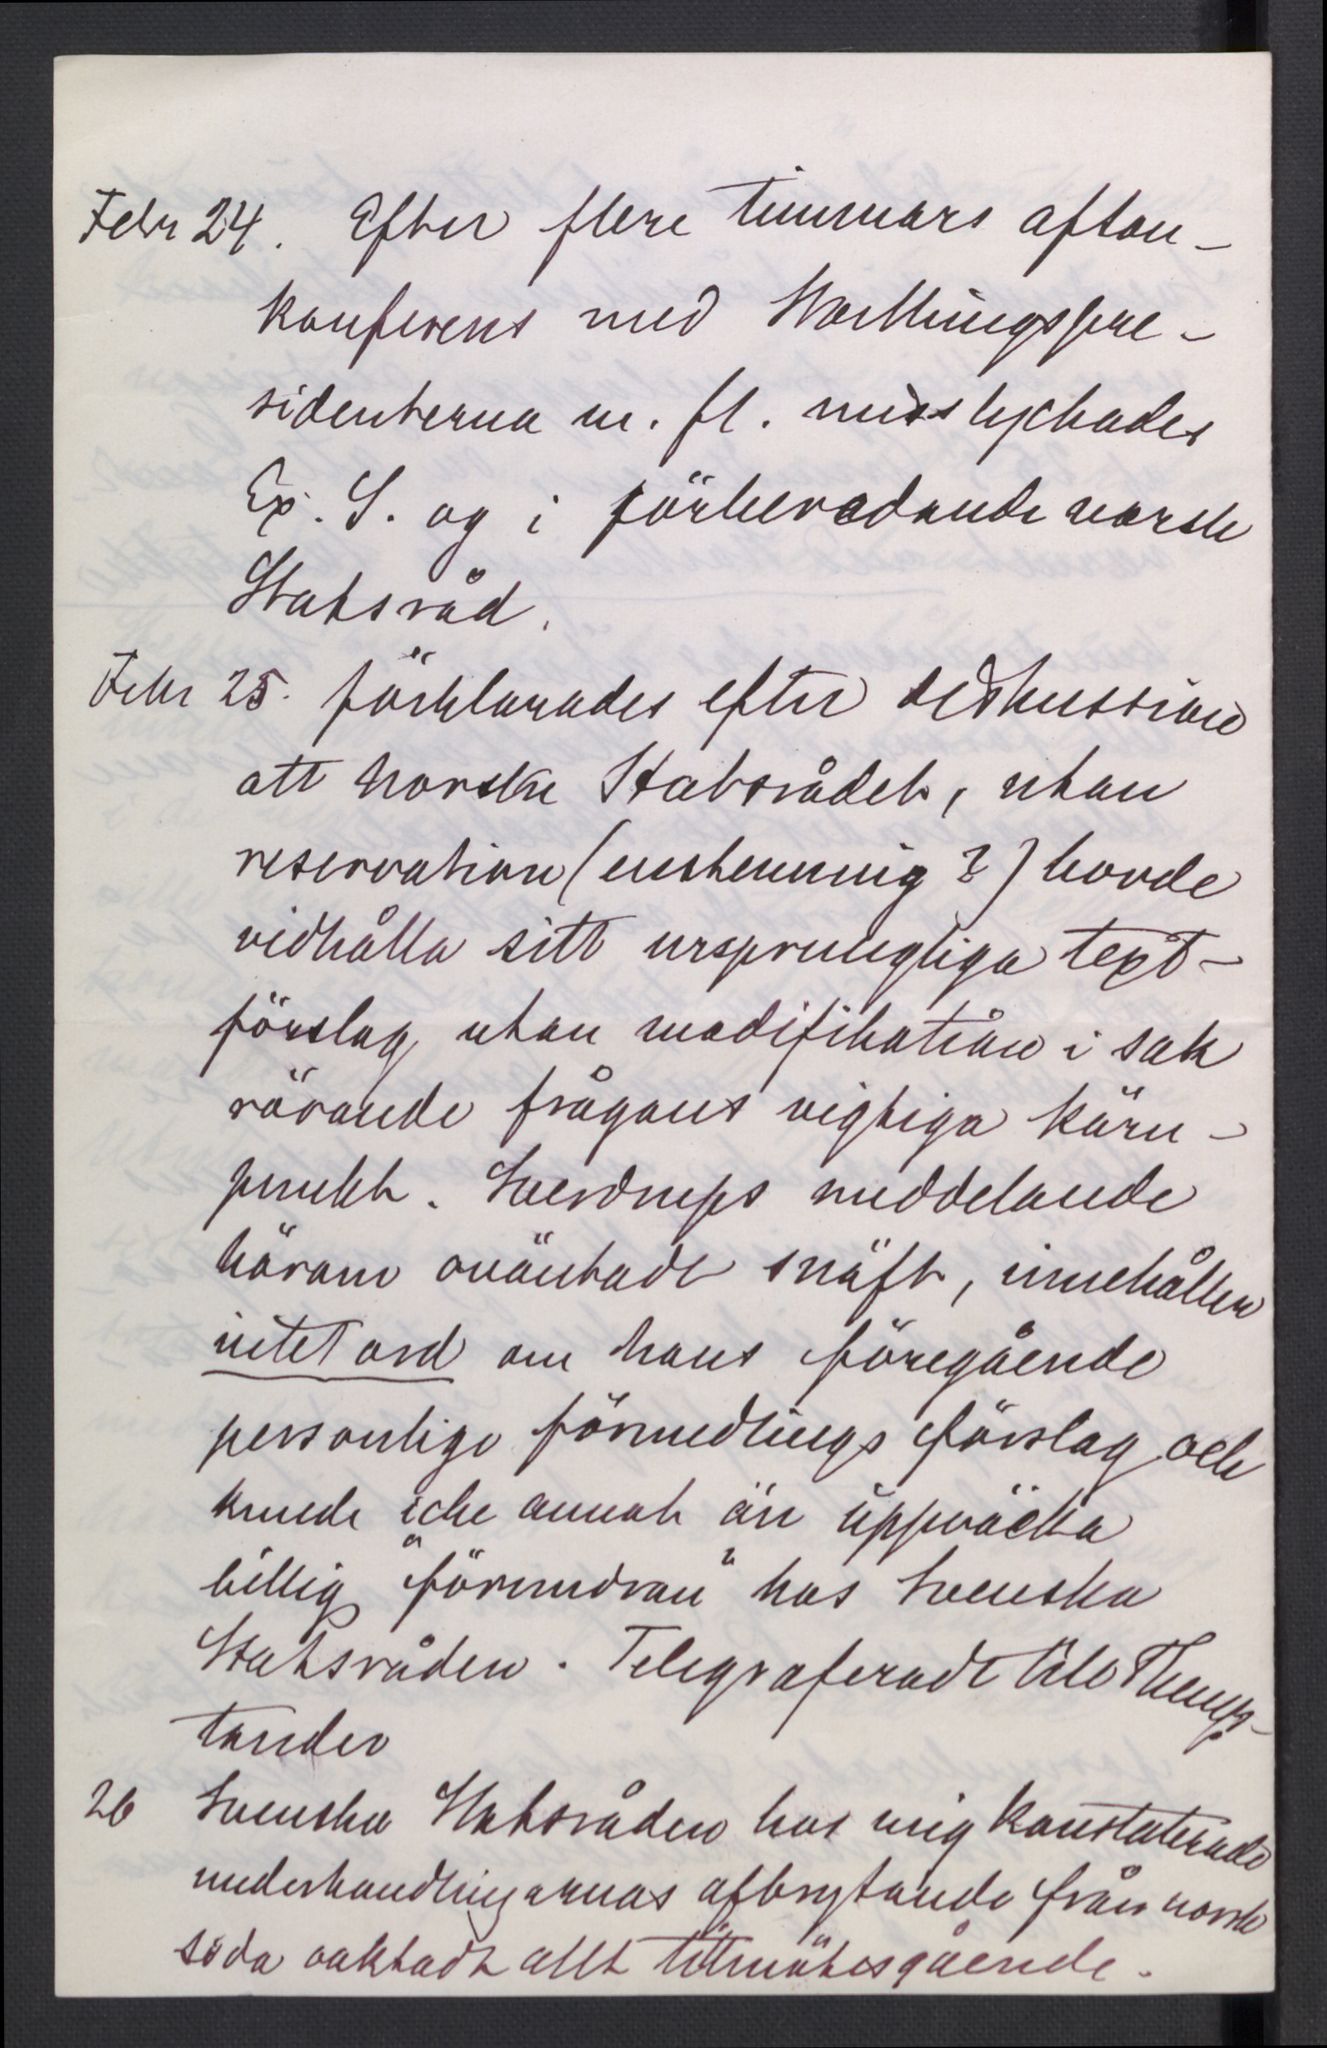 Febr 24. Efter flere timmars afton-
konferens med Storthingspre-
sidenterna m. fl. misslyckades
Ex. S. og i förberedande norsk
Statsråd.
Febr 25. förklarades efter diskussion
att norska Statsrådet, utan
reservation (enstemmig?) borde
vidhålla sitt ursprungliga text-
förslag utan modifikation i sak
rörande frågans vigtiga kärn-
punkt. Sverdrups meddelande
härom oväntadt snäft, innehållen
intet ord om hans föregående
personlige förmedlings förslag och
kunde icke annat än uppväcka
billig "förundran" hos Svenska
Statsråden. Telegraferadt till Themp-
tander
26 Svenska Statsråden hos mig konstaterade
underhandlingarnas afbrytande från norsk
sida oaktadt allt tillmötesgående.